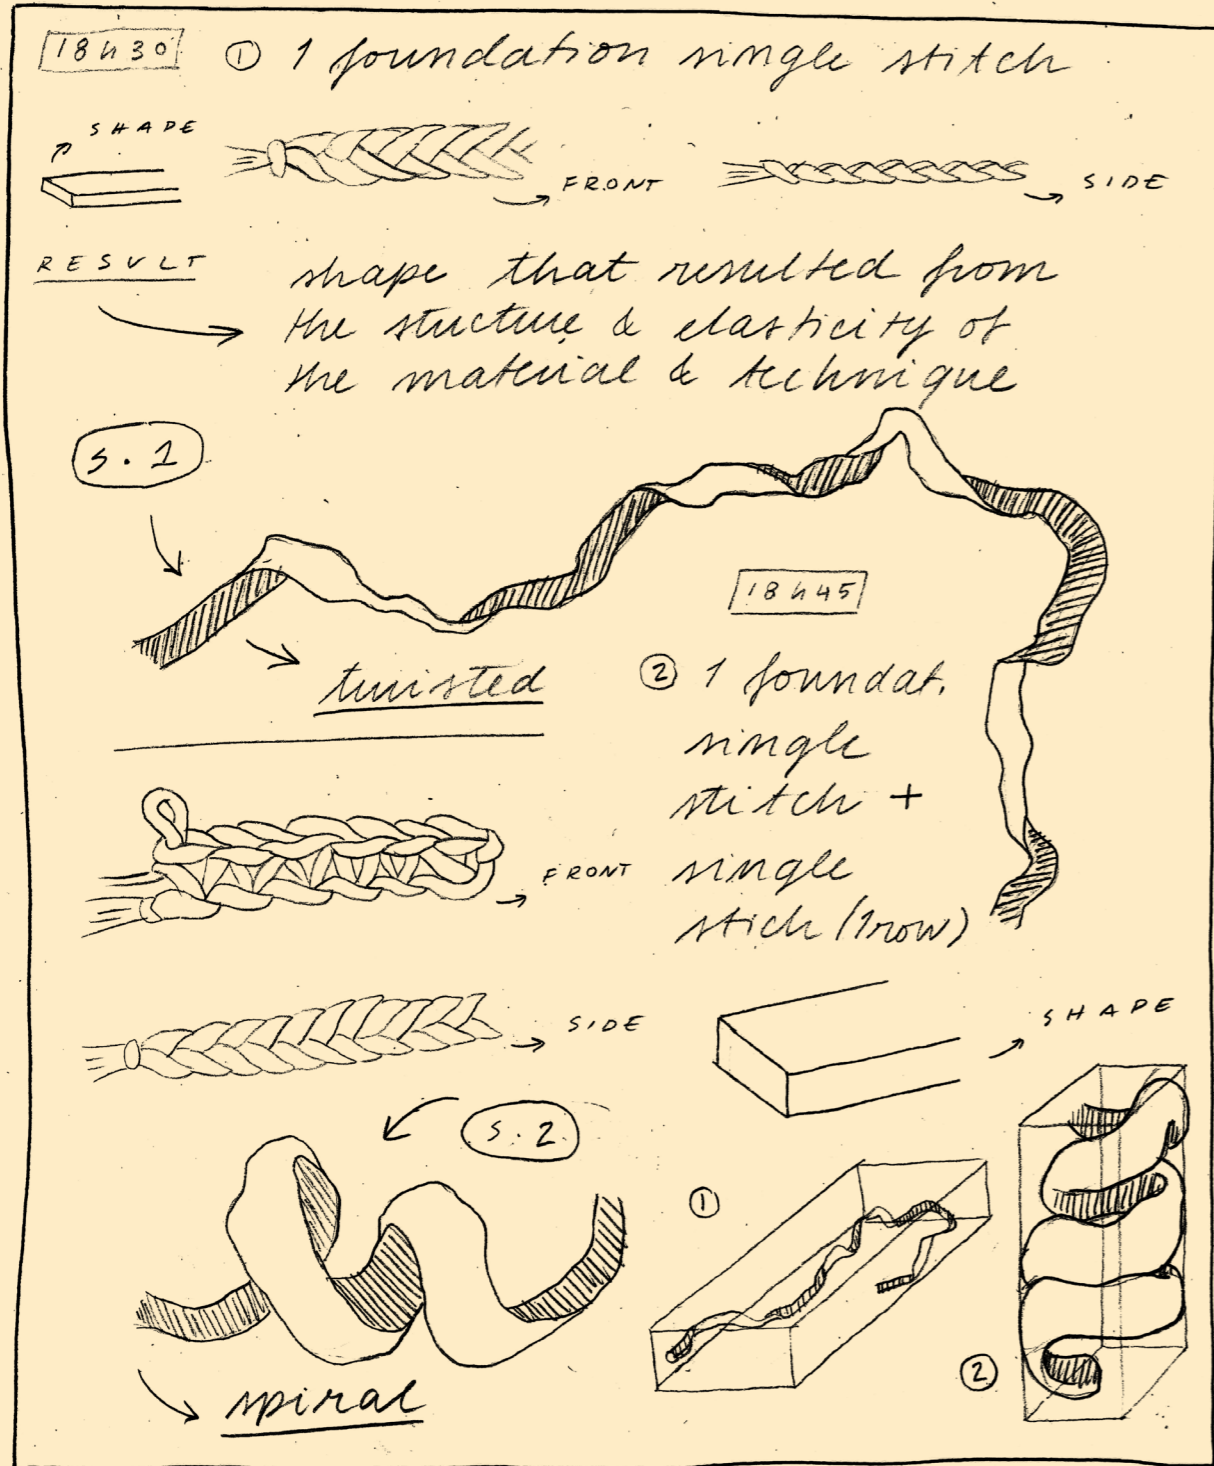 18h30 ① 1 foundation single stitch
SHAPE
FRONT
SIDE
RESULT
shape that resulted from
the stucture & elasticity of
the material & technique
s.1
twisted
18h45
② 1 foundat.
single
stitch +
single
stich (1row)
FRONT
SIDE
SHAPE
s.2
spiral
①
②